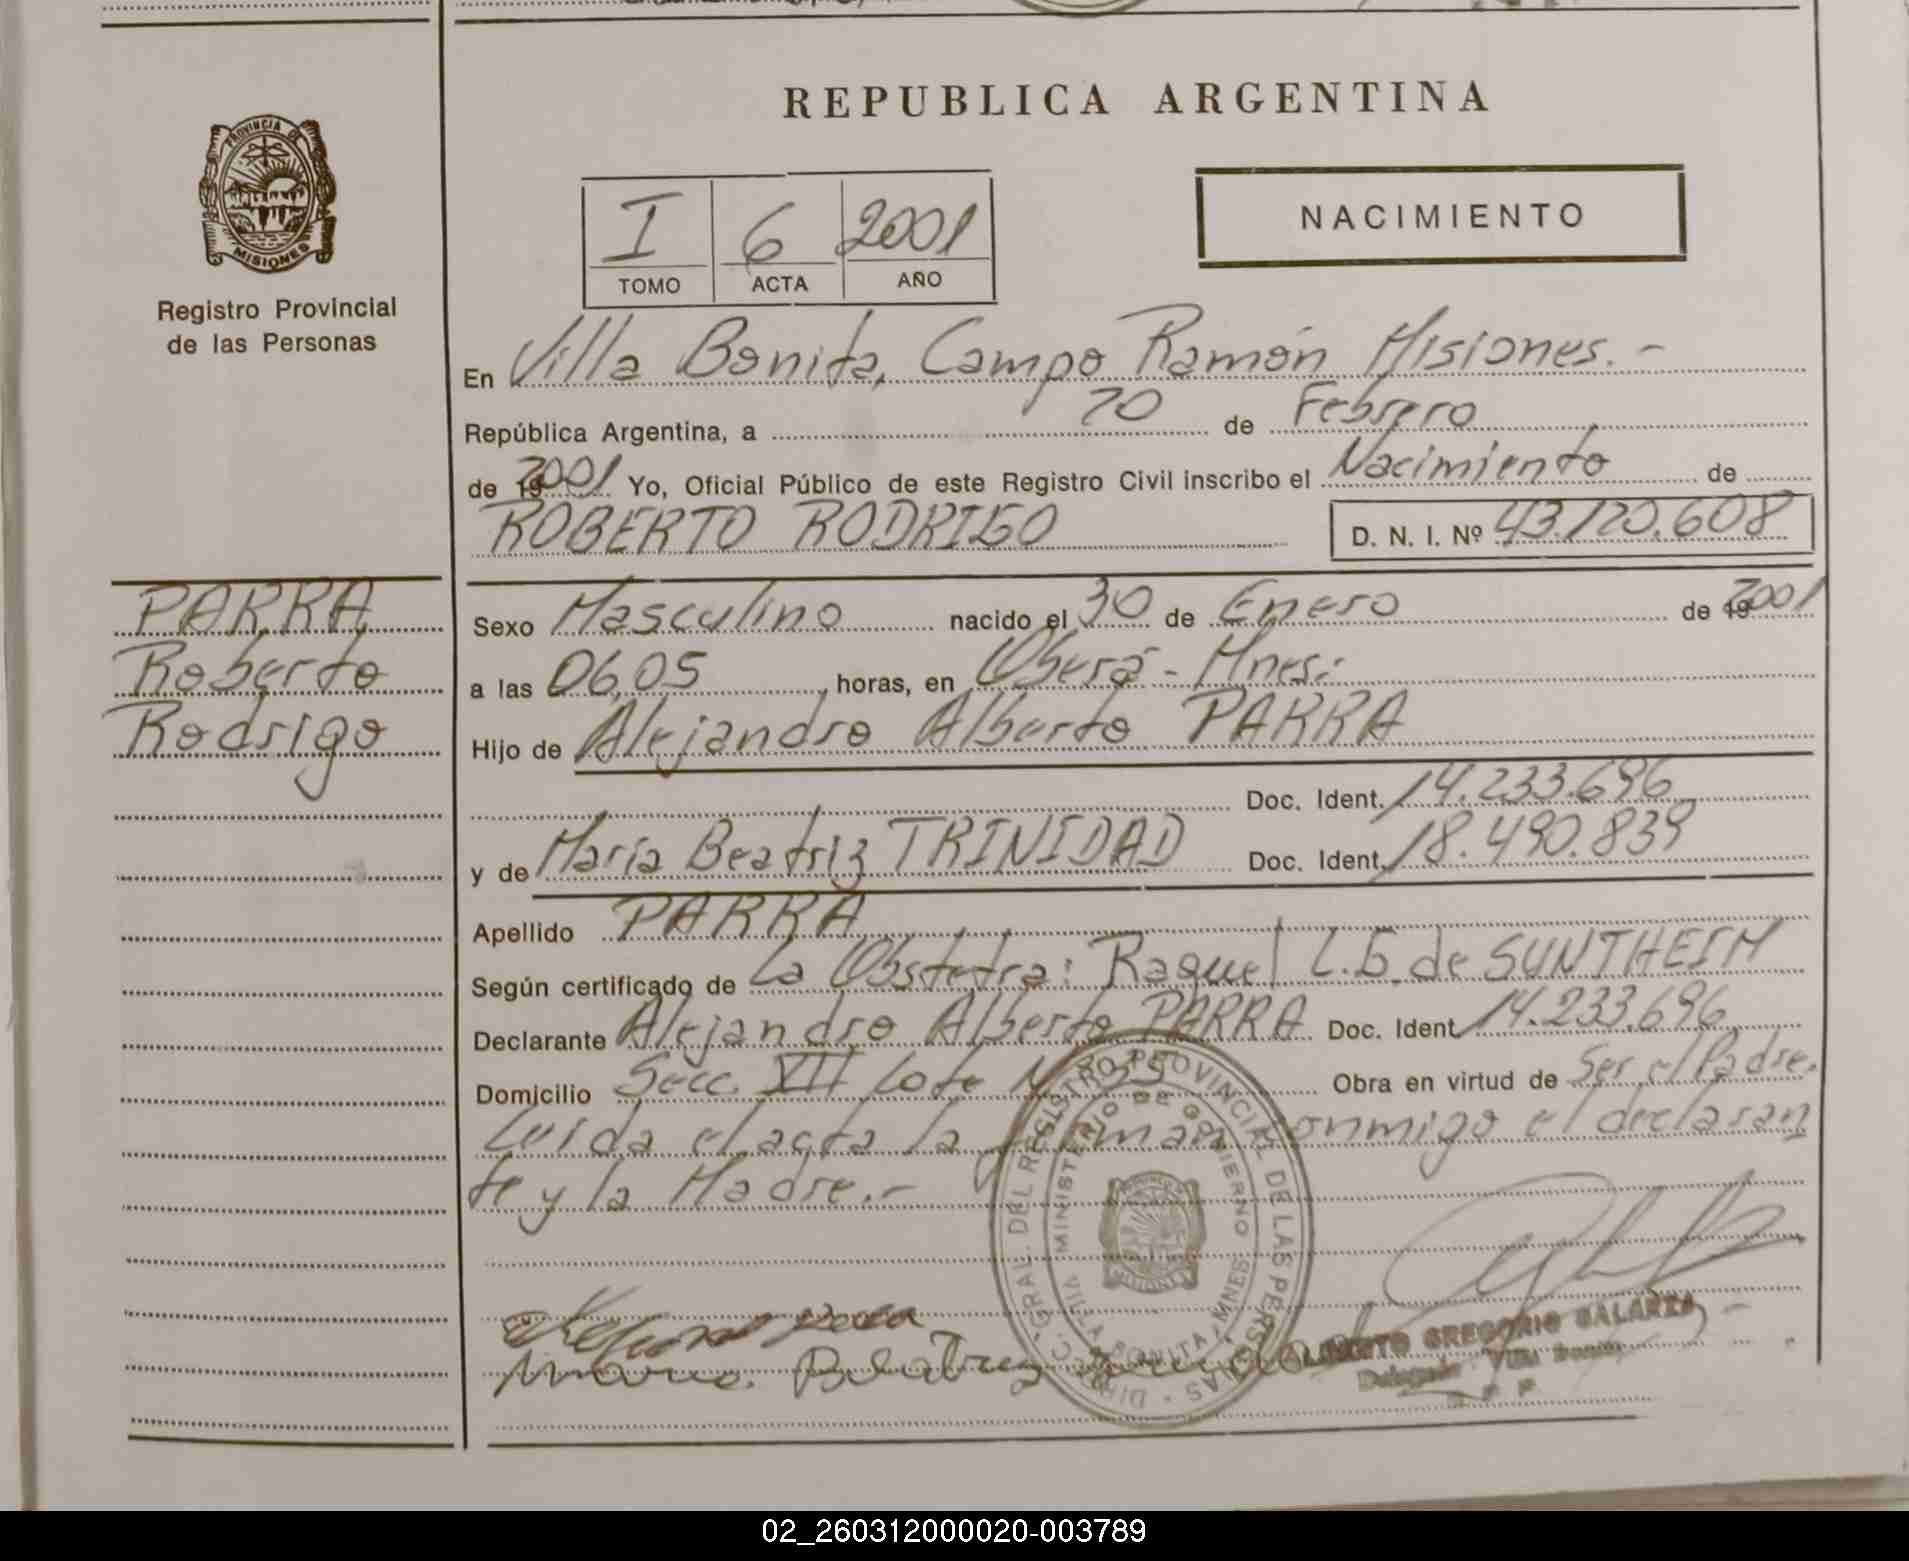 REPUBLICA ARGENTINA
PROVINCIA DE
MISIONES
Registro Provincial
de las Personas
I 6 2001
TOMO ACTA AÑO
NACIMIENTO
En Villa Bonita, Campo Ramón Misiones.-
República Argentina, a 20 de Febrero
de 192001 Yo, Oficial Público de este Registro Civil inscribo el Nacimiento de
ROBERTO RODRIGO D. N. I. Nº 43.120.608
PARRA
Roberto
Rodrigo
Sexo Masculino nacido el 30 de Enero de 192001
a las 06,05 horas, en Oberá - Mnes.
Hijo de Alejandro Alberto PARRA
Doc. Ident. 14.233.696
y de María Beatriz TRINIDAD Doc. Ident. 18.490.839
Apellido PARRA
Según certificado de La Obstetra: Raquel L.G. de SUNTHEIM
Declarante Alejandro Alberto PARRA Doc. Ident. 14.233.696
Domicilio Secc. VII Lote Nº 35 Obra en virtud de Ser el Padre.
Leida el acta la firman conmigo el declaran
te y la Madre.-
DIRECC. GRAL. DEL REGISTRO PROVINCIAL DE LAS PERSONAS
MINISTERIO DE GOBIERNO
VILLA BONITA, MNES.
GREGORIO GALARZA
Delegado Villa Bonita
02_260312000020-003789